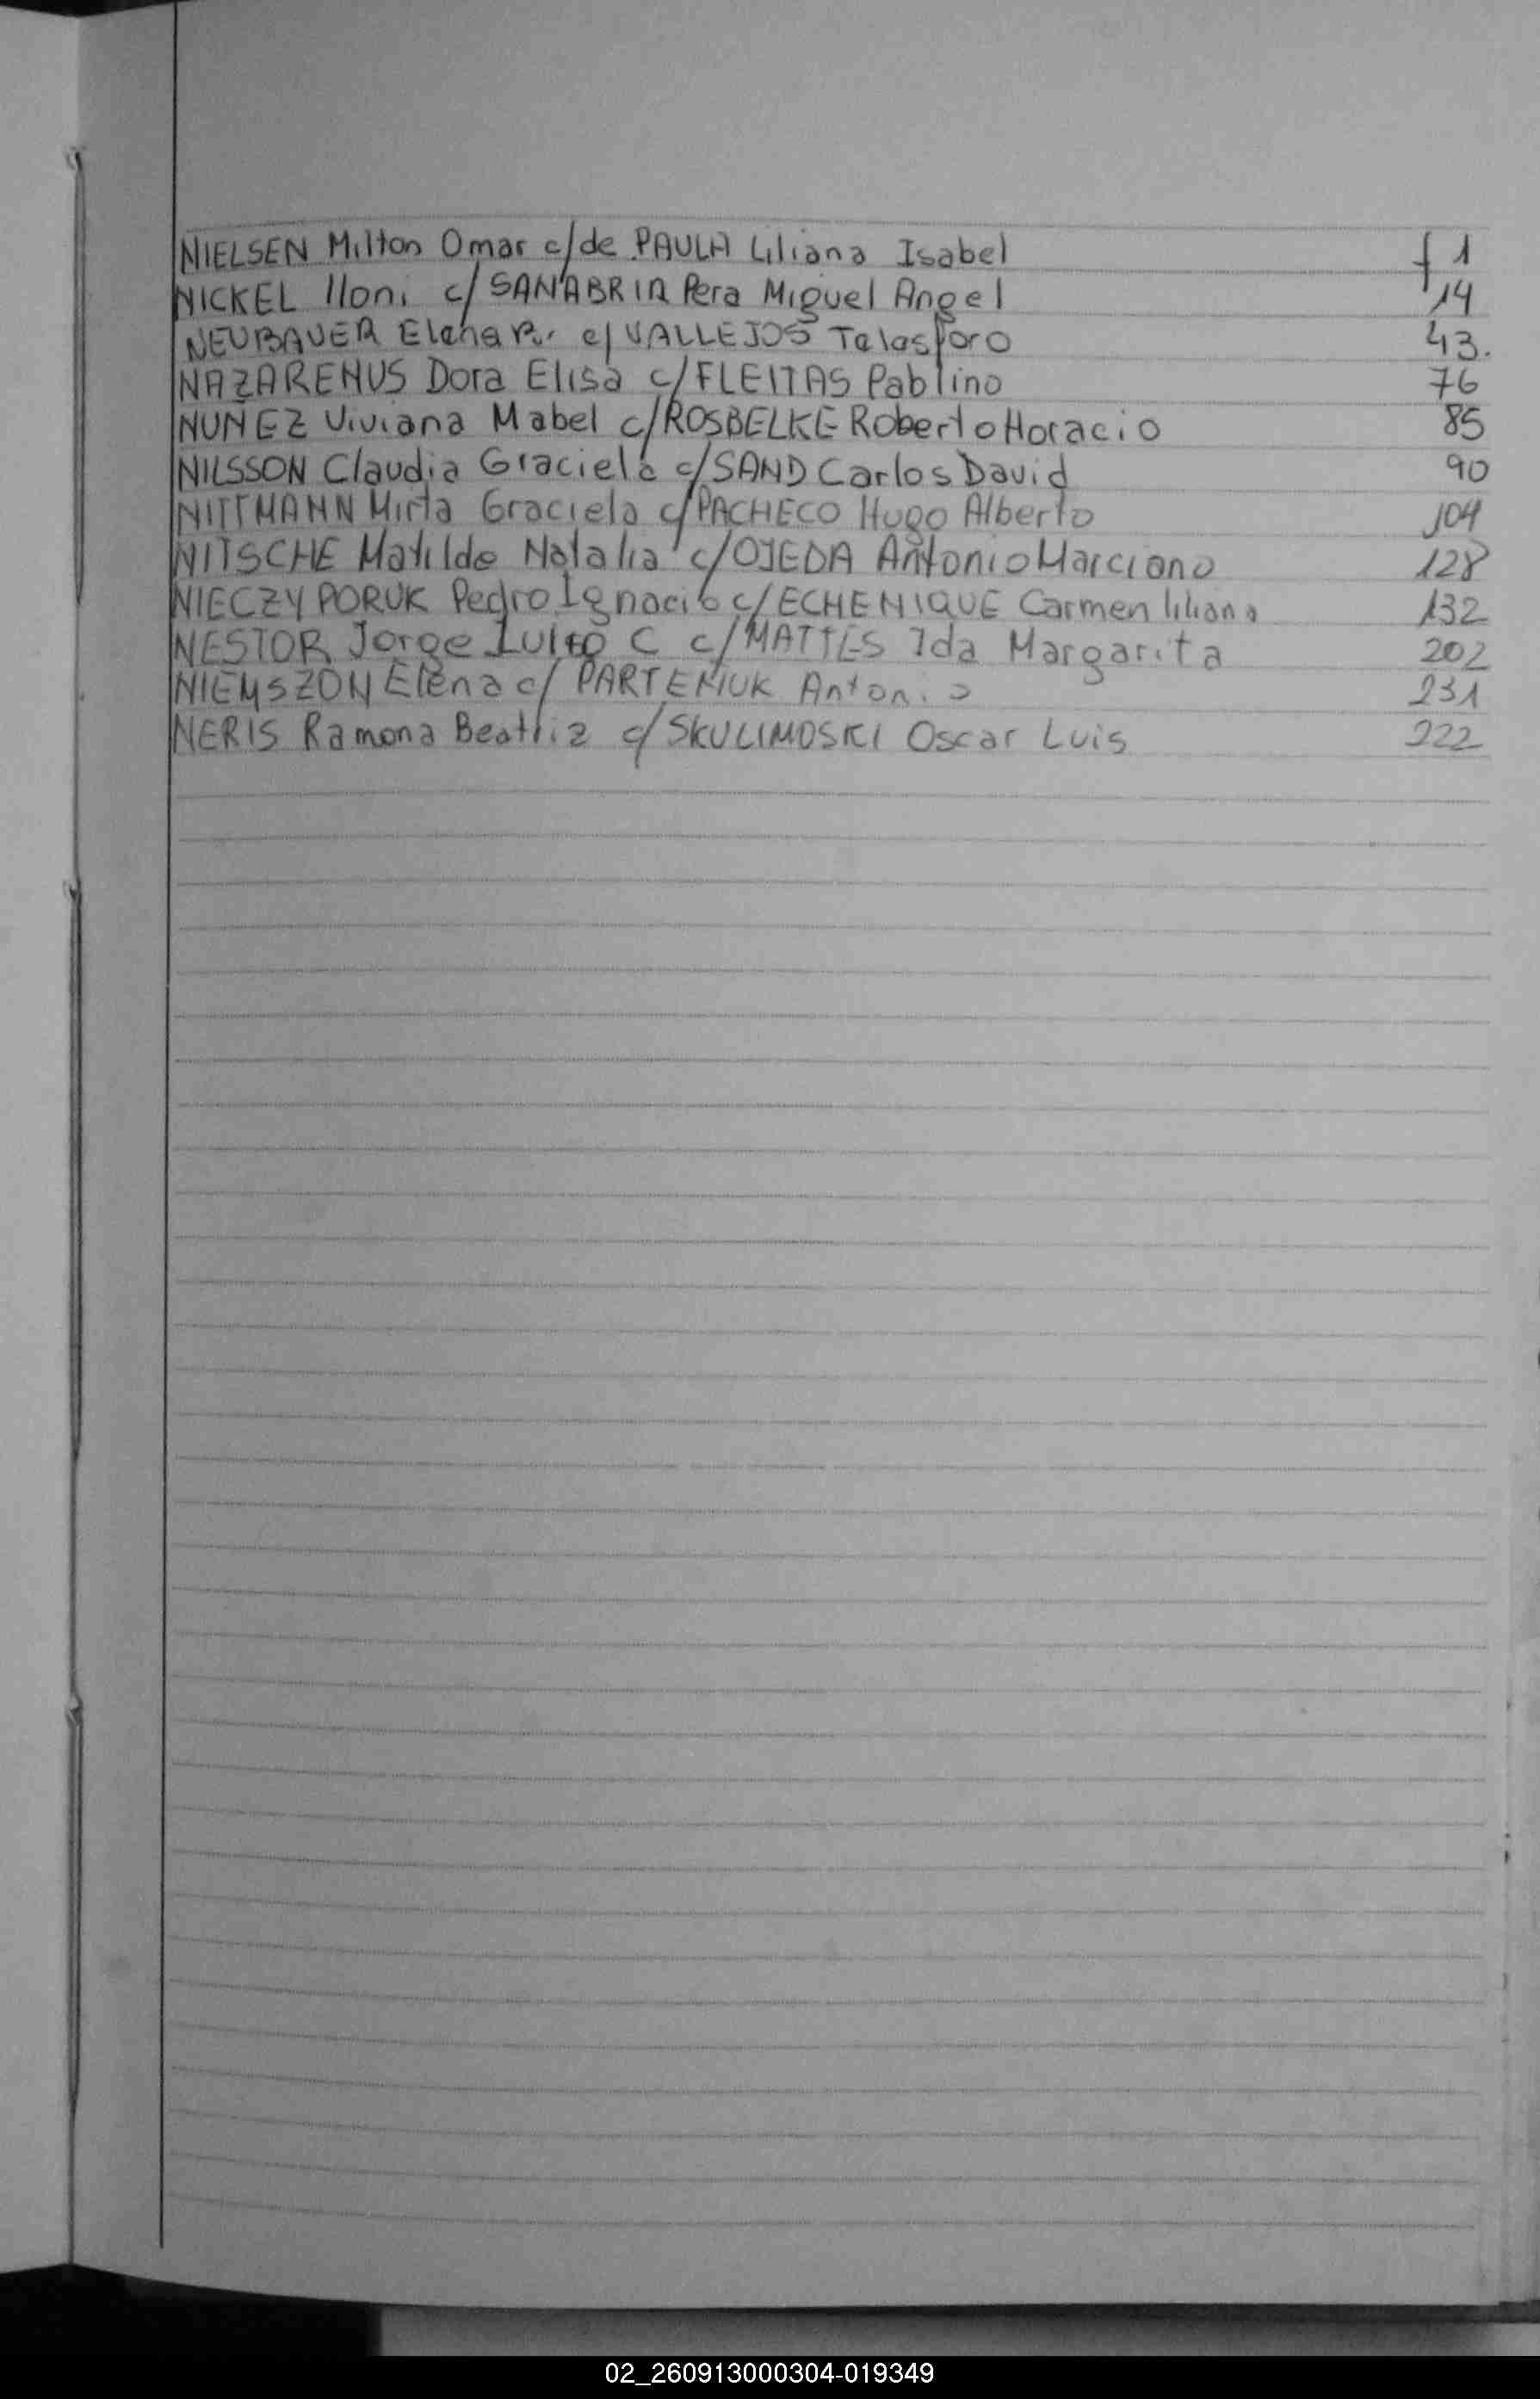 NIELSEN Milton Omar c/de PAULA Liliana Isabel f 1
NICKEL Iloni c/ SANABRIA Pera Miguel Angel 14
NEUBAUER Elena R. c/ VALLEJOS Telasforo 43.
NAZARENUS Dora Elisa c/FLEITAS Pablino 76
NUNEZ Viviana Mabel c/ROSBELKE Roberto Horacio 85
NILSSON Claudia Graciela c/SAND Carlos David 90
NITTMANN Mirta Graciela c/PACHECO Hugo Alberto 104
NITSCHE Matilde Natalia c/OJEDA Antonio Marciano 128
NIECZYPORUK Pedro Ignacio c/ECHENIQUE Carmen liliana 132
NESTOR Jorge C c/MATTES Ida Margarita 202
NIEMSZON Elena c/ PARTENIUK Antonio 231
NERIS Ramona Beatriz c/SKULIMOSKI Oscar Luis 222
02_260913000304-019349